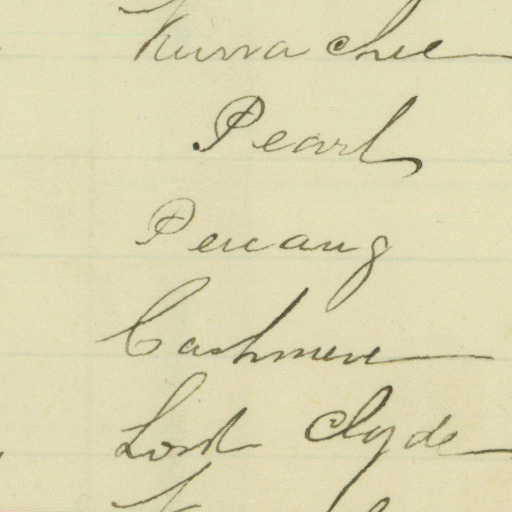 Kurrachee
Pearl
Penang
Cashmere
Lord Clyde